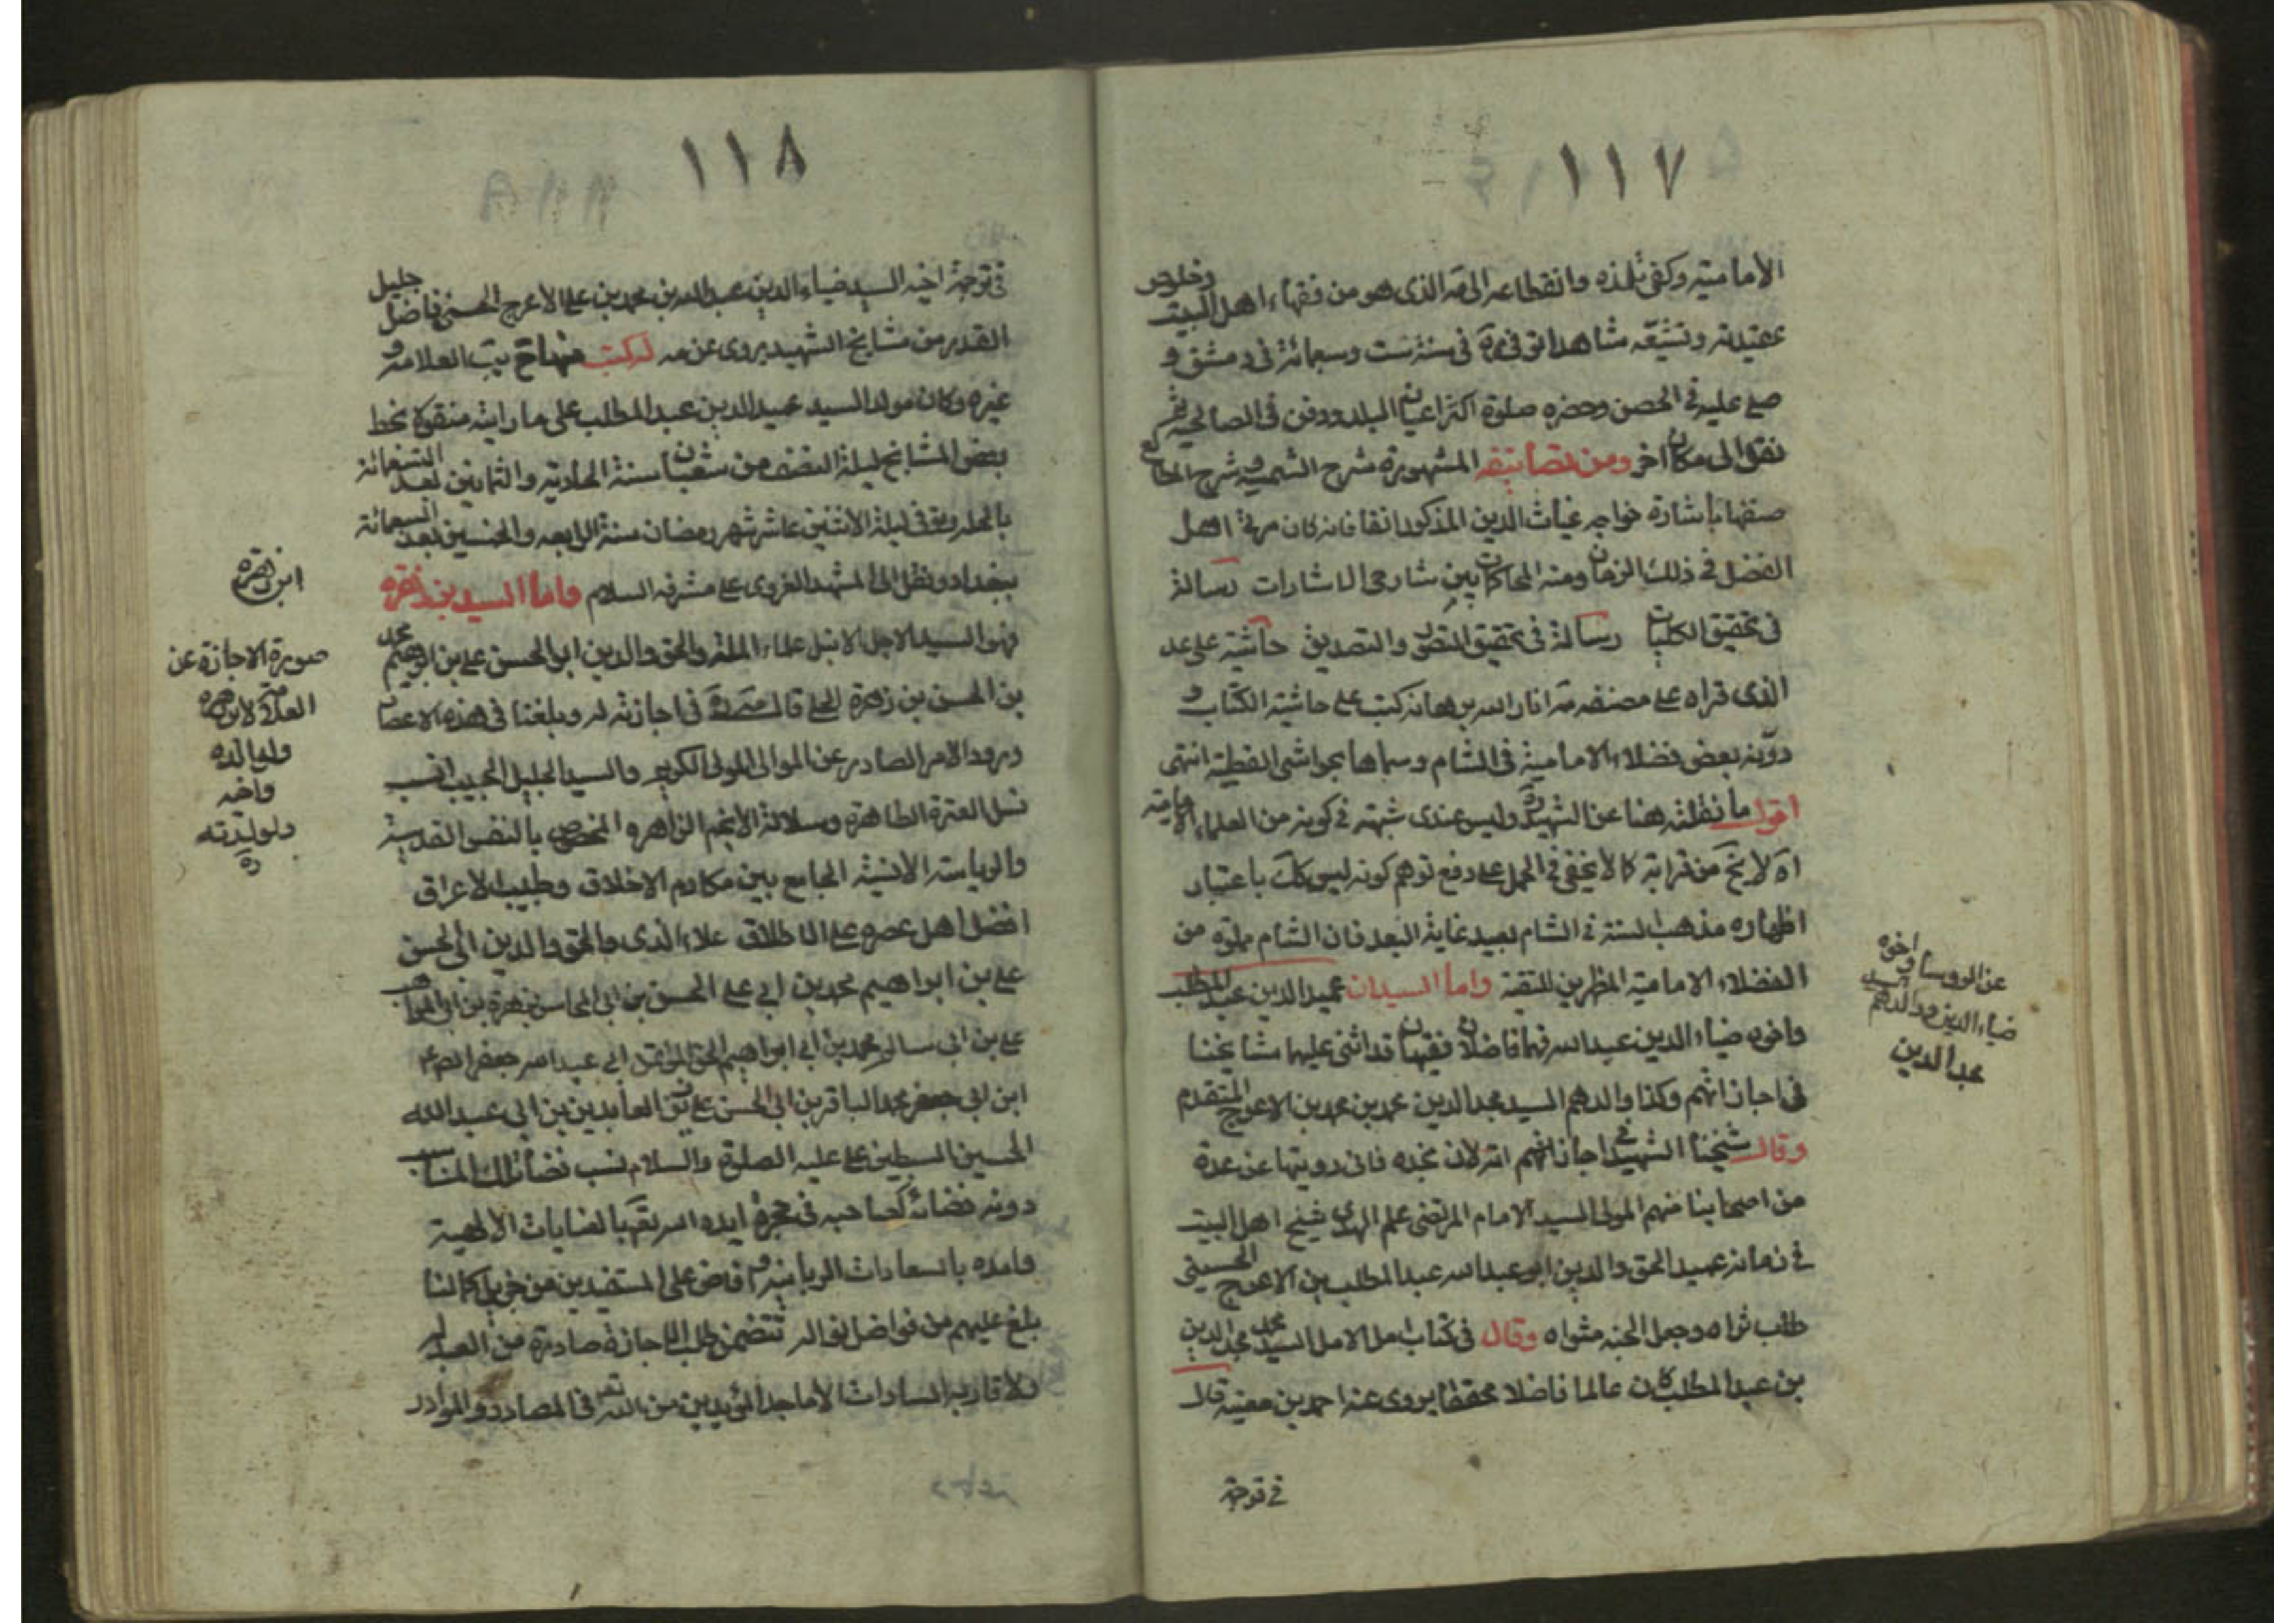 ١١٧
الاماميته وكفى تلمذه وانقطاعه الى مه الذى هو من فقهاء اهل البيت وخلوص
عقيدته وتشيعه مشاهدا توفى مره فى سنة ست وسبعمائة فى دمشق و
صلى عليه فى الحصن وحضره صلوة اكثر اعيان البلد ودفن فى الصالحيه ثم
نقل الى مكان اخر ومن تصانيفه المشهورة شرح الشمسيه وشرح المطالع
صنفها باشارة خواجه غياث الدين المذكور انفا فانه كان مربى اهل
الفضل فى ذلك الزمان ومنه المحاكمات بين شارحى الاشارات رسالة
فى تحقيق الكليات رسالة فى تحقيق التصور والتصديق حاشية على عد
الذى قراه على مصنفه مه انار الله برهانه كتب على حاشية الكتاب و
دوّنه بعض فضلاء الامامية فى الشام وسماها بحواشى القطبية انتهى
اقول ما نقلته هنا عن الشهيد ره وليس عندى شبهة فى كونه من العلماء الامامية
اه لا يخ من غرابة كما لا يخفى فى الحمل على دفع توهم كونه ليس كك باعتبار
اظهاره مذهب السنة فى الشام بعيد غاية البعد فان الشام مملوة من
الفضلاء الامامية المظهرين للتقية واما السيدان عميد الدين عبد المطلب
واخوه ضياء الدين عبد الله فهما فاضلان فقيهان قد اثنى عليهما مشايخنا
فى اجازاتهم وكذا والدهم السيد مجد الدين محمد بن محمد بن الاعرج المتقدم
وقال شيخنا الشهيد فى اجازاتهم لابن نجده فانى رويتها عن عدة
من اصحابنا منهم المولى السيد الامام المرتضى علم الهدى شيخ اهل البيت
فى زمانه عميد الحق والدين ابو عبد الله عبد المطلب بن الاعرج الحسينى
طاب ثراه وجعل الجنة مثواه وقال فى كتاب امل الامل السيد محمد مجد الدين
بن عبد المطلب كان عالما فاضلا محققا يروى عنه احمد بن معيه قال
فى ترجمة
عن الروسا واخوه
السيد
ضياء الدين ووالدهم
مجد الدين
١١٨
فى ترجمة اخيه السيد ضياء الدين عبد الله بن محمد بن على الاعرج الحسينى فاضل جليل
القدر من مشايخ الشهيد يروى عن مه له كتب منها العلامه و
غيره وكان مولد السيد عميد الدين عبد المطلب على ما رايته منقولا بخط
بعض المشايخ ليلة النصف من شعبان سنة الحادية والثمانين بعد الستمائة
بالحله وتوفى ليلة الاثنين عاشر شهر رمضان سنة الرابعه والخمسين بعد السبعمائة
ببغداد ونقل الى المشهد الغروى على مشرفه السلام واما السيد بن زهره
فهو السيد الاجل الانبل علاء الملة والحق والدين ابو الحسن على بن ابراهيم محمد
بن الحسن بن زهرة الحلى قال مه فى اجازته له وبلغنا فى هذه الاعصار
ورود الامر الصادر عن الموالى المولى الكريم والسيد الجليل الحسيب النسيب
نسل العترة الطاهرة وسلالة الانجم الزاهره المخصوص بالنفس القدسية
والرياسة الانسية الجامع بين مكارم الاخلاق وطيب الاعراق
افضل اهل عصره على الاطلاق علاء الدين والحق والدين ابى الحسن
على بن ابراهيم محمد بن ابى على الحسن بن ابى المحاسن زهرة بن ابى المواهب
على بن ابى سالم محمد بن ابى ابراهيم الحق المؤتمن ابى عبد الله جعفر الصادق
ابن ابى جعفر محمد الباقر بن ابى الحسن على زين العابدين بن ابى عبد الله
الحسين السبط بن على عليه الصلوة والسلام نسب تضائلت المناسب
دونه فضائه كصاحبه فى فجره ايده الله تعالى بالعنايات الالهية
وامده بالسعادات الربانية وافاض على المستفيدين من جزيل كماله
بلغ عليهم من فواضل نواله تتضمن طلب الاجازة صادرة من العبد له
ولاقاربه السادات الاماجد المؤيدين من الله تعه فى المصادر والموارد
ابن زهره
صورة الاجازة عن
العلامة لابن زهره
ولوالده
واخيه
ولولديه
ره